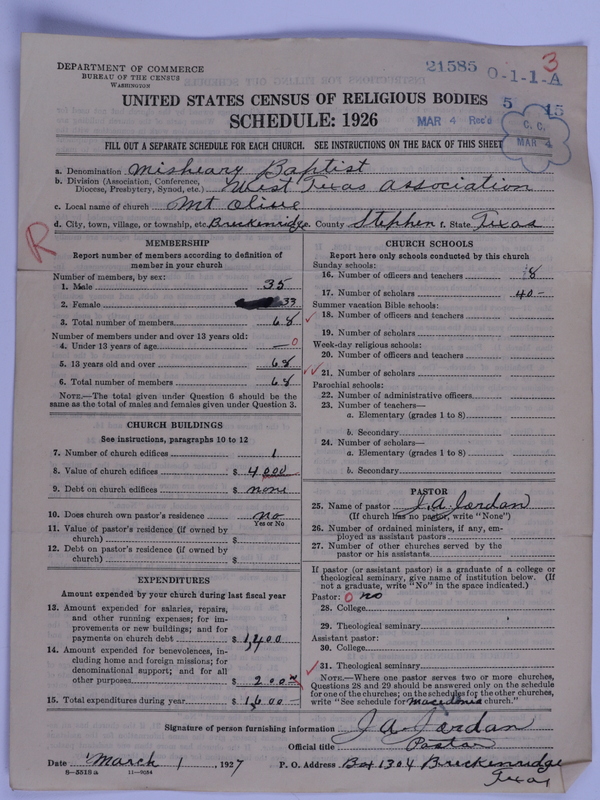 DEPARTMENT OF COMMERCE
BUREAU OF THE CENSUS
WASHINGTON
21585 0-1-1-A
3
UNITED STATES CENSUS OF RELIGIOUS BODIES
SCHEDULE: 1926
MAR 4 Rec'd
5 15
C. C.
MAR 4
FILL OUT A SEPARATE SCHEDULE FOR EACH CHURCH. SEE INSTRUCTIONS ON THE BACK OF THIS SHEET
a. Denomination Misheary Baptist
b. Division (Association, Conference, Diocese, Presbytery, Synod, etc.) West Texas association
c. Local name of church Mt Olive
d. City, town, village, or township, etc. Breckenridge e. County Stephen f. State Texas
R
MEMBERSHIP
Report number of members according to definition of
member in your church
Number of members, by sex:
1. Male 35
2. Female 33
3. Total number of members 68
Number of members under and over 13 years old:
4. Under 13 years of age — 0
5. 13 years old and over 68
6. Total number of members 68
NOTE.—The total given under Question 6 should be
same as the total of males and females given under Question 3.
CHURCH BUILDINGS
See instructions, paragraphs 10 to 12
7. Number of church edifices 1
8. Value of church edifices $ 4000
9. Debt on church edifices $ none
10. Does church own pastor's residence no
Yes or No
11. Value of pastor's residence (if owned by
church) $
12. Debt on pastor's residence (if owned by
church) $
EXPENDITURES
Amount expended by your church during last fiscal year
13. Amount expended for salaries, repairs,
and other running expenses; for im-
provements or new buildings; and for
payments on church debt $ 1,400
14. Amount expended for benevolences, in-
cluding home and foreign missions; for
denominational support; and for all
other purposes $ 200
15. Total expenditures during year $ 1,600 —
CHURCH SCHOOLS
Report here only schools conducted by this church
Sunday schools:
16. Number of officers and teachers 8
17. Number of scholars 40 —
Summer vacation Bible schools:
18. Number of officers and teachers
19. Number of scholars
Week-day religious schools:
20. Number of officers and teachers
21. Number of scholars
Parochial schools:
22. Number of administrative officers
23. Number of teachers—
a. Elementary (grades 1 to 8)
b. Secondary
24. Number of scholars—
a. Elementary (grades 1 to 8)
b. Secondary
PASTOR
25. Name of pastor J. A. Jordan
(If church has no pastor, write "None")
26. Number of ordained ministers, if any, em-
ployed as assistant pastors
27. Number of other churches served by the
pastor or his assistants
If pastor (or assistant pastor) is a graduate of a college or
theological seminary, give name of institution below. (If
not a graduate, write "No" in the space indicated.)
Pastor: 0 no
28. College
29. Theological seminary
Assistant pastor:
30. College
31. Theological seminary
NOTE.—Where one pastor serves two or more churches,
Questions 28 and 29 should be answered only on the schedule
for one of the churches; on the schedules for the other churches,
write "See schedule for Macedonia church."
Signature of person furnishing information J A Jordan
Official title Pastor
Date March 1, 1927 P. O. Address Box 1304 Breckenridge
Texas
8—5518 a 11—9034